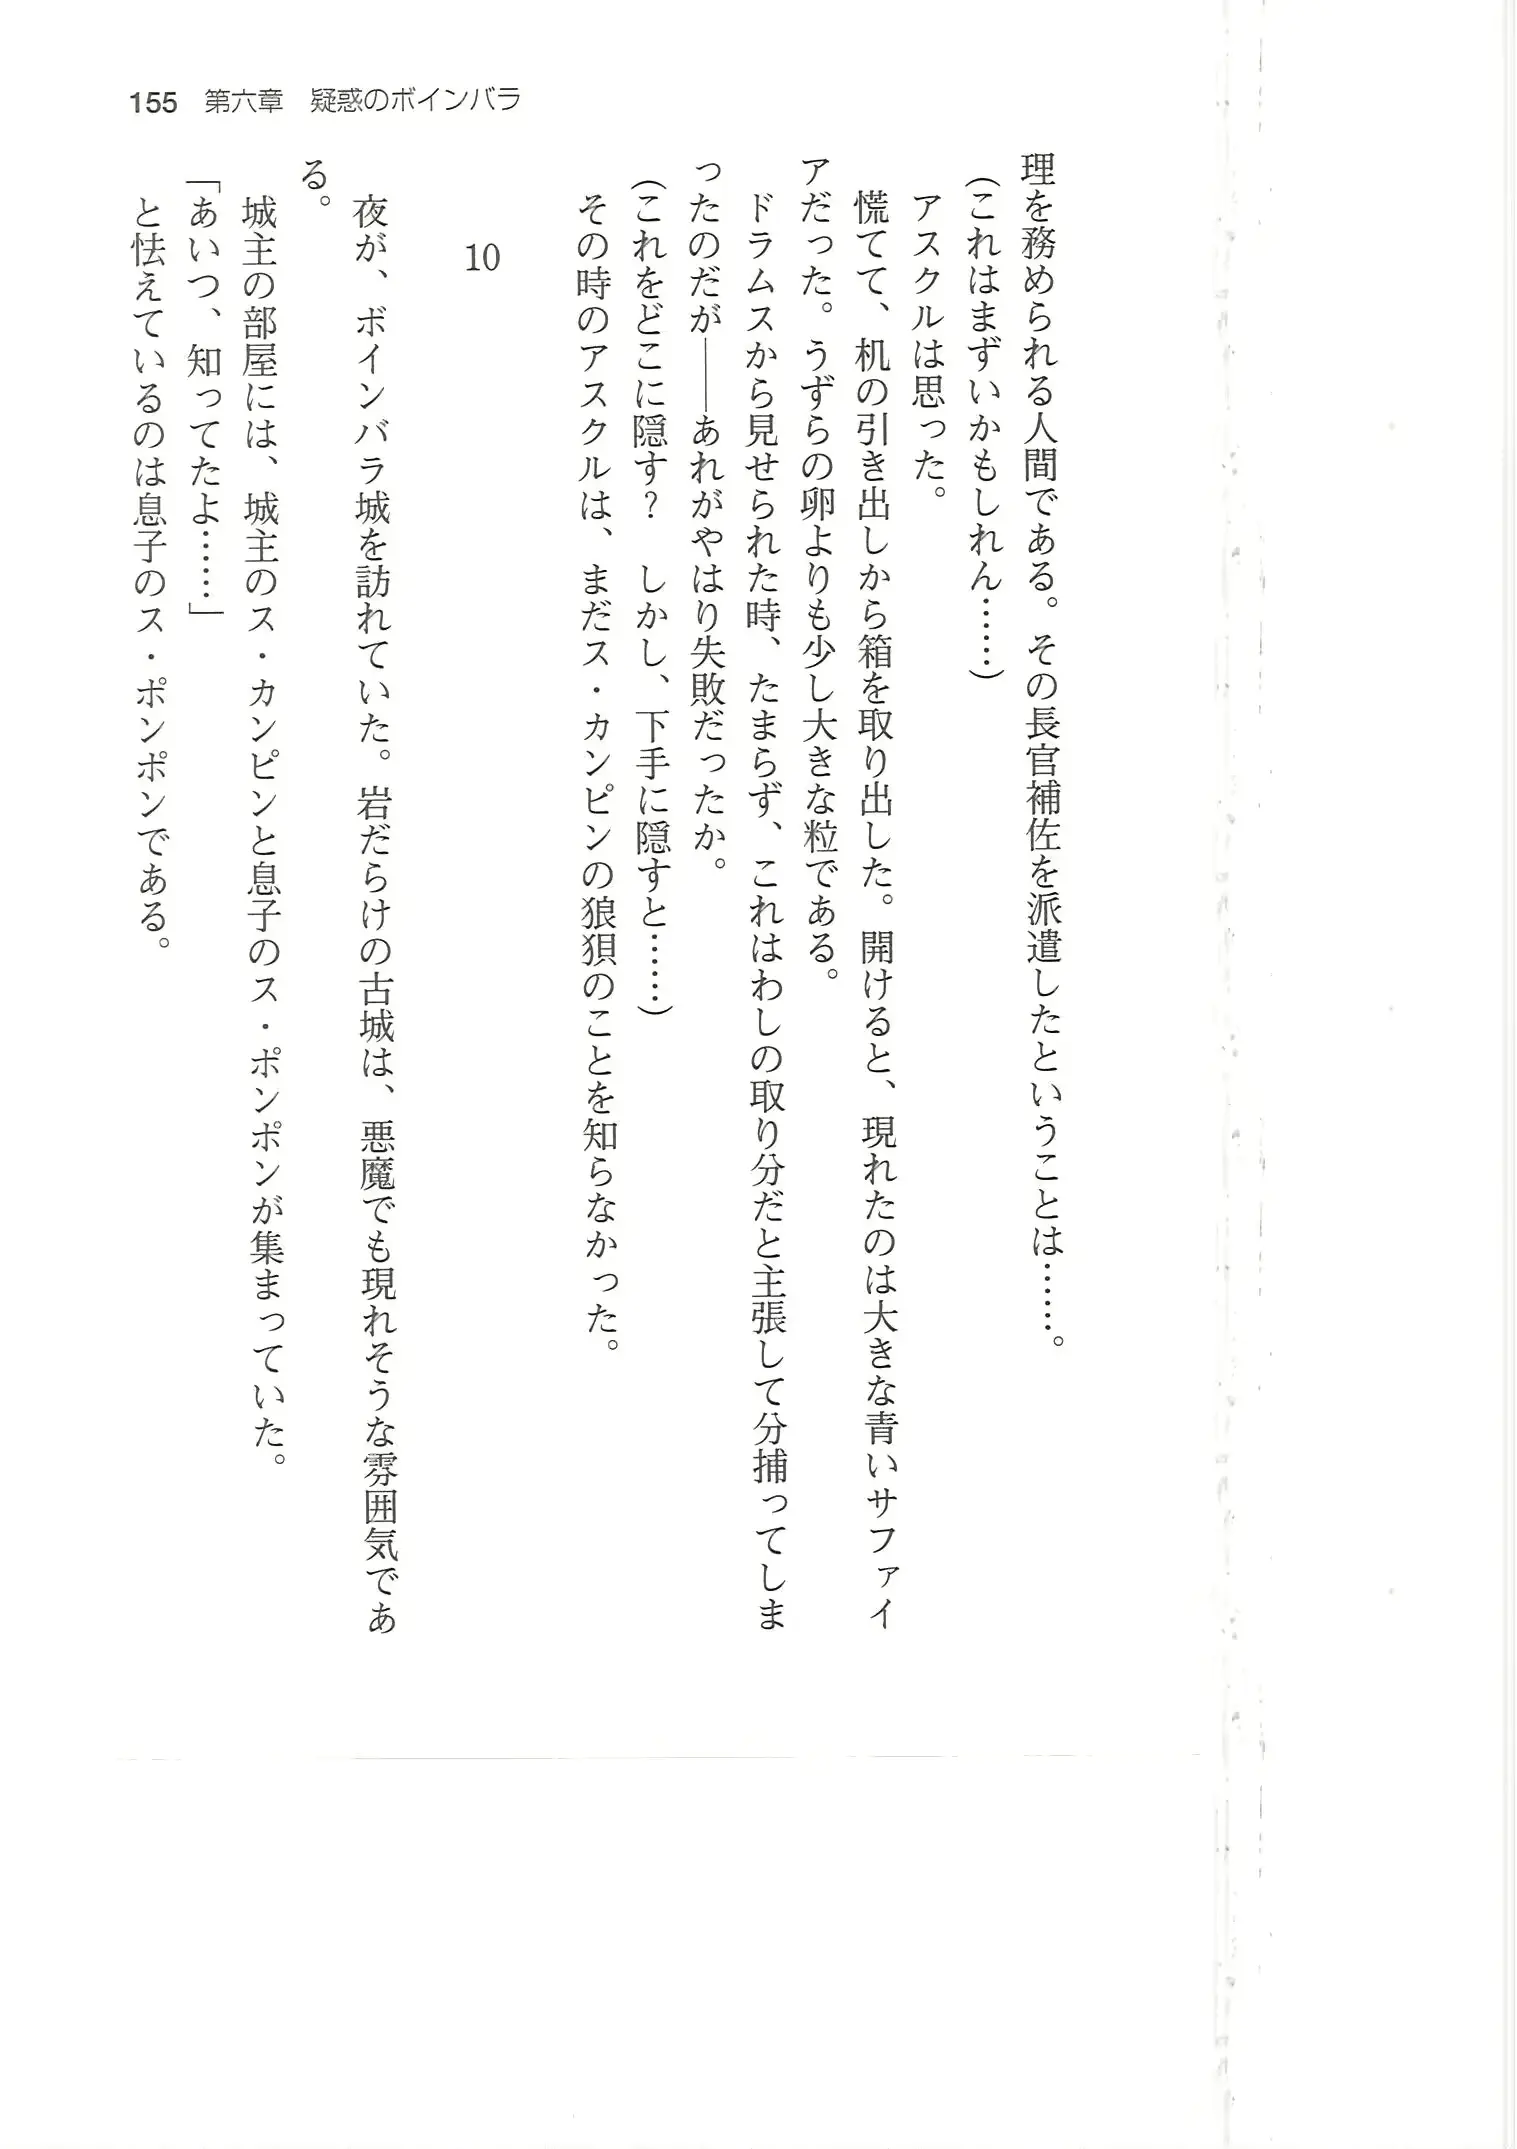 155 第六章 疑惑のボインバラ
理を務められる人間である。その長官補佐を派遣したということは……。
（これはまずいかもしれん……）
アスクルは思った。
慌てて、机の引き出しから箱を取り出した。開けると、現れたのは大きな青いサファイ
アだった。うずらの卵よりも少し大きな粒である。
ドラムスから見せられた時、たまらず、これはわしの取り分だと主張して分捕ってしま
ったのだが――あれがやはり失敗だったか。
（これをどこに隠す？　しかし、下手に隠すと……）
その時のアスクルは、まだス・カンピンの狼狽のことを知らなかった。
10
夜が、ボインバラ城を訪れていた。岩だらけの古城は、悪魔でも現れそうな雰囲気であ
る。
城主の部屋には、城主のス・カンピンと息子のス・ポンポンが集まっていた。
「あいつ、知ってたよ……」
と怯えているのは息子のス・ポンポンである。